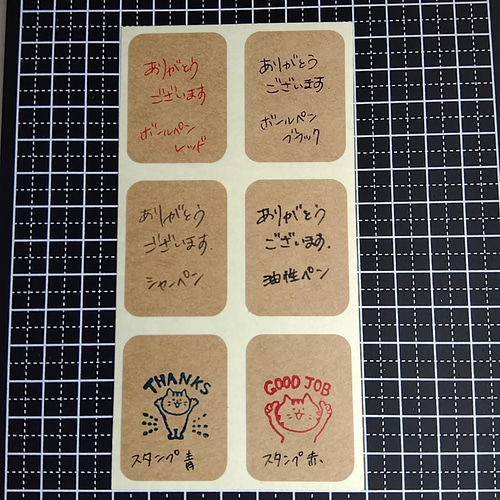 ありがとう
ございます
ボールペン
レッド
ありがとう
ございます
ボールペン
ブラック
ありがとう
ございます.
シャーペン
ありがとう
ございます.
油性ペン
THANKS
スタンプ 青
GOOD JOB
スタンプ 赤